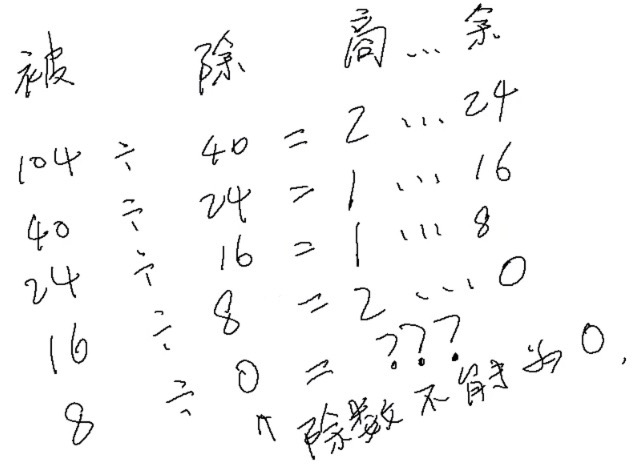 被 除 商 … 余
104 ÷ 40 = 2 … 24
40 ÷ 24 = 1 … 16
24 ÷ 16 = 1 … 8
16 ÷ 8 = 2 … 0
8 ÷ 0 = ???
↑ 除数不能为0.